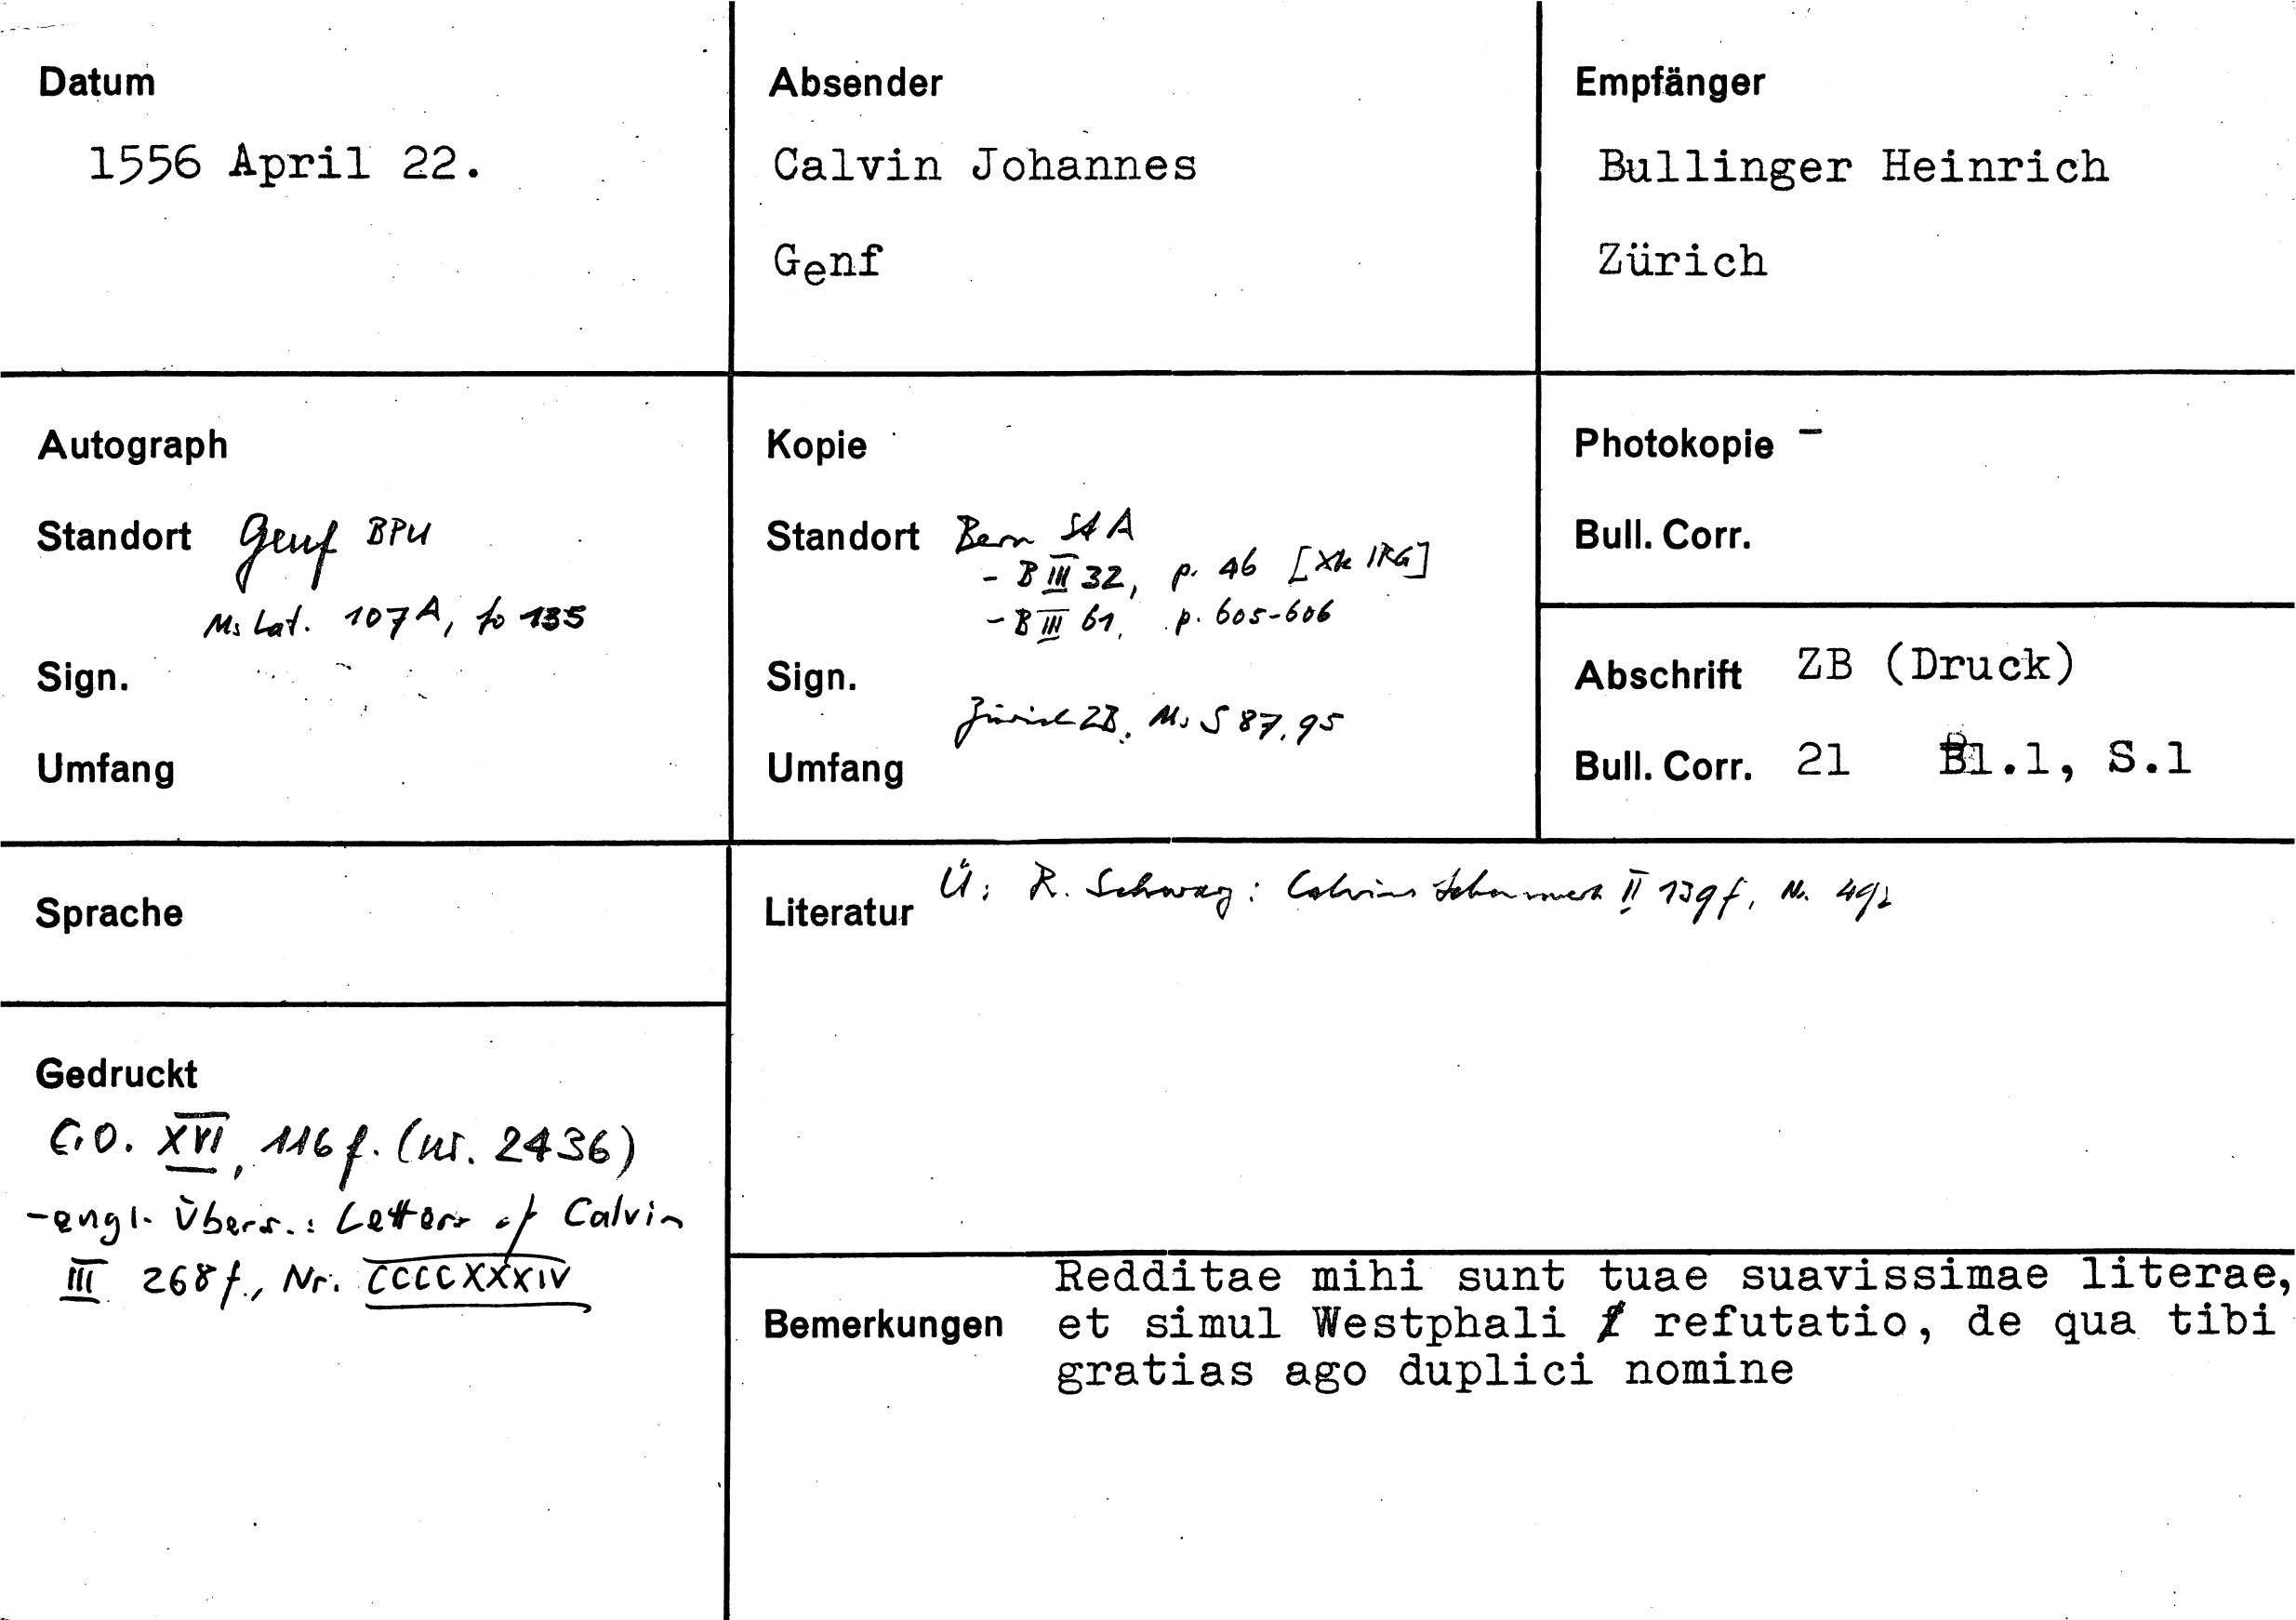 Datum
1556 April 22.
Absender
Calvin Johannes
Genf
Empfänger
Bullinger Heinrich
Zürich
Autograph
Standort Genf BPU
Ms Lat. 107A, fo 135
Sign.
Umfang
Kopie
Standort Bern StA
- B III 32, p. 46 [Xk IRG]
- B III 61, p. 605-606
Sign.
Zürich ZB, Ms S 87, 95
Umfang
Photokopie -
Bull. Corr.
Abschrift ZB (Druck)
Bull. Corr. 21 Bl.1, S.1
Sprache
Literatur Ü: R. Schwarz: Calvins II 139f, Nr. 492
Gedruckt
C.O. XVI, 116f. (nr. 2436)
- engl. Übers.: Letters of Calvin
III 268f., Nr. CCCCXXXIV
Bemerkungen
Redditae mihi sunt tuae suavissimae literae,
et simul Westphali refutatio, de qua tibi
gratias ago duplici nomine